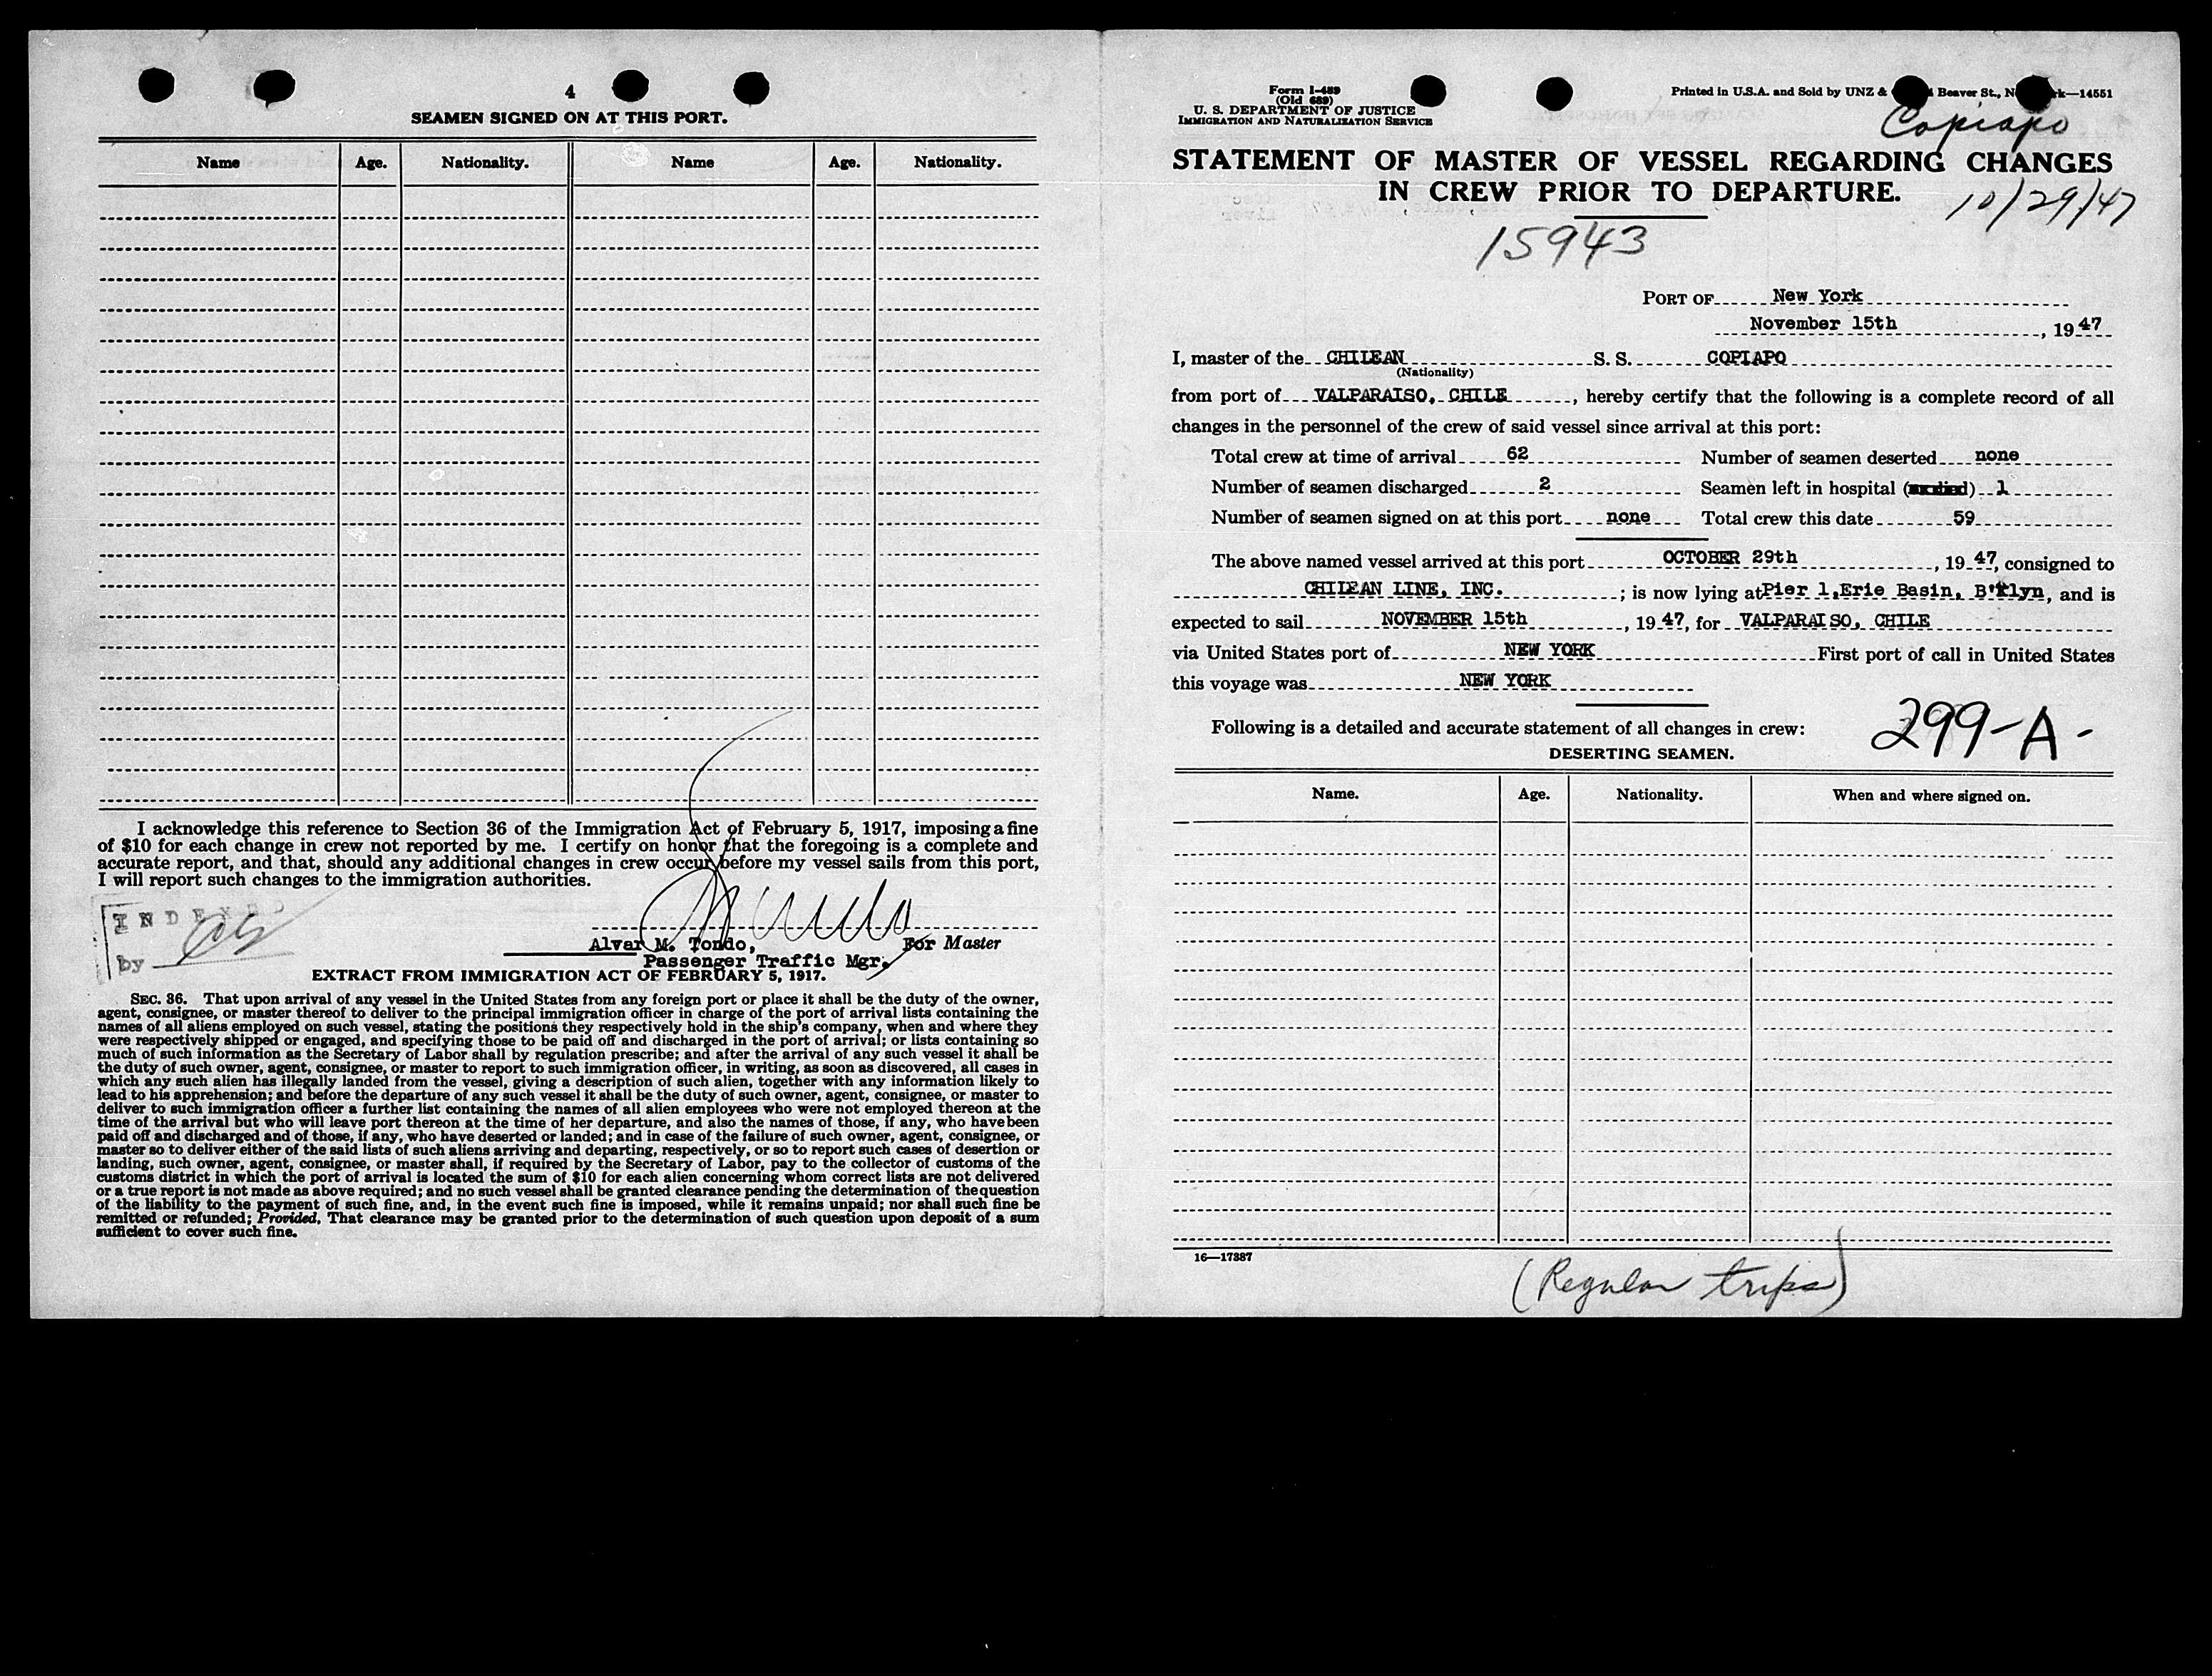 4
SEAMEN SIGNED ON AT THIS PORT.
Name Age. Nationality. Name Age. Nationality.
I acknowledge this reference to Section 36 of the Immigration Act of February 5, 1917, imposing a fine
of $10 for each change in crew not reported by me. I certify on honor that the foregoing is a complete and
accurate report, and that, should any additional changes in crew occur before my vessel sails from this port,
I will report such changes to the immigration authorities.
INDEXED
by
Alvar M. Tondo, For Master
Passenger Traffic Mgr.
EXTRACT FROM IMMIGRATION ACT OF FEBRUARY 5, 1917.
SEC. 36. That upon arrival of any vessel in the United States from any foreign port or place it shall be the duty of the owner,
agent, consignee, or master thereof to deliver to the principal immigration officer in charge of the port of arrival lists containing the
names of all aliens employed on such vessel, stating the positions they respectively hold in the ship's company, when and where they
were respectively shipped or engaged, and specifying those to be paid off and discharged in the port of arrival; or lists containing so
much of such information as the Secretary of Labor shall by regulation prescribe; and after the arrival of any such vessel it shall be
the duty of such owner, agent, consignee, or master to report to such immigration officer, in writing, as soon as discovered, all cases in
which any such alien has illegally landed from the vessel, giving a description of such alien, together with any information likely to
lead to his apprehension; and before the departure of any such vessel it shall be the duty of such owner, agent, consignee, or master to
deliver to such immigration officer a further list containing the names of all alien employees who were not employed thereon at the
time of the arrival but who will leave port thereon at the time of her departure, and also the names of those, if any, who have been
paid off and discharged and of those, if any, who have deserted or landed; and in case of the failure of such owner, agent, consignee, or
master so to deliver either of the said lists of such aliens arriving and departing, respectively, or so to report such cases of desertion or
landing, such owner, agent, consignee, or master shall, if required by the Secretary of Labor, pay to the collector of customs of the
customs district in which the port of arrival is located the sum of $10 for each alien concerning whom correct lists are not delivered
or a true report is not made as above required; and no such vessel shall be granted clearance pending the determination of the question
of the liability to the payment of such fine, and, in the event such fine is imposed, while it remains unpaid; nor shall such fine be
remitted or refunded; Provided, That clearance may be granted prior to the determination of such question upon deposit of a sum
sufficient to cover such fine.
Form I-489
(Old 689)
U. S. DEPARTMENT OF JUSTICE
IMMIGRATION AND NATURALIZATION SERVICE
Printed in U.S.A. and Sold by UNZ & Beaver St., —14551
Copiapo
STATEMENT OF MASTER OF VESSEL REGARDING CHANGES
IN CREW PRIOR TO DEPARTURE.
10/29/47
15943
PORT OF New York
November 15th, 1947
I, master of the CHILEAN S. S. COPIAPO
(Nationality)
from port of VALPARAISO, CHILE, hereby certify that the following is a complete record of all
changes in the personnel of the crew of said vessel since arrival at this port:
Total crew at time of arrival 62 Number of seamen deserted none
Number of seamen discharged 2 Seamen left in hospital ( ) 1
Number of seamen signed on at this port none Total crew this date 59
The above named vessel arrived at this port OCTOBER 29th, 1947, consigned to
CHILEAN LINE, INC. ; is now lying at Pier 1, Erie Basin, B'klyn, and is
expected to sail NOVEMBER 15th, 1947, for VALPARAISO, CHILE
via United States port of NEW YORK First port of call in United States
this voyage was NEW YORK
Following is a detailed and accurate statement of all changes in crew:
299-A-
DESERTING SEAMEN.
Name. Age. Nationality. When and where signed on.
16—17387
(Regular trips)